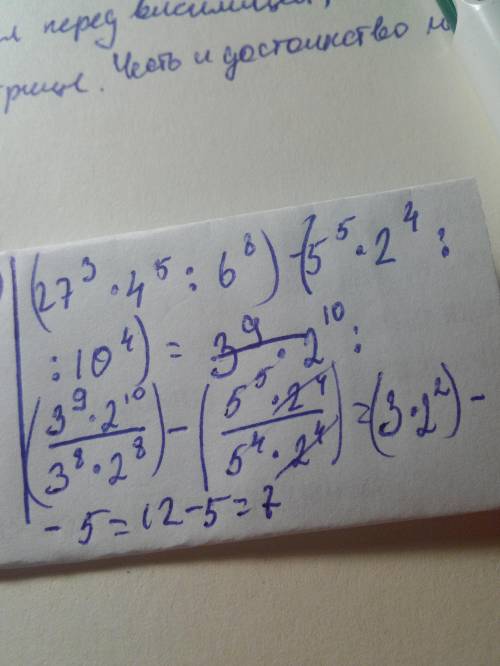 перед виселицей,
Честь и достоинство
(27³ · 4⁵ : 6⁸) - (5⁵ · 2⁴ :
: 10⁴) = 3⁹ · 2¹⁰ :
(3⁹ · 2¹⁰ / 3⁸ · 2⁸) - (5⁵ · 2⁴ / 5⁴ · 2⁴) = (3 · 2²) -
- 5 = 12 - 5 = 7